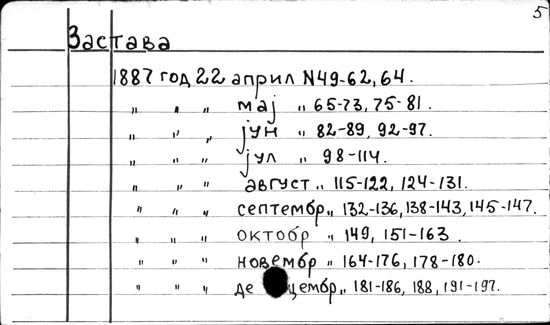 5
Застава
1887 год 22 април N49-62, 64.
„ „ „ мај „ 65-73, 75-81.
„ „ „ јун „ 82-89, 92-97.
„ „ „ јул „ 98-114.
„ „ „ август „ 115-122, 124-131.
„ „ „ септембр „ 132-136, 138-143, 145-147.
„ „ „ октобр „ 149, 151-163.
„ „ „ новембр „ 164-176, 178-180.
„ „ „ де цембр „ 181-186, 188, 191-197.